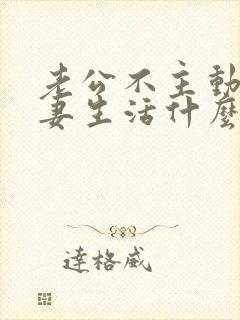 老公不主動
妻生活什麼
達格威